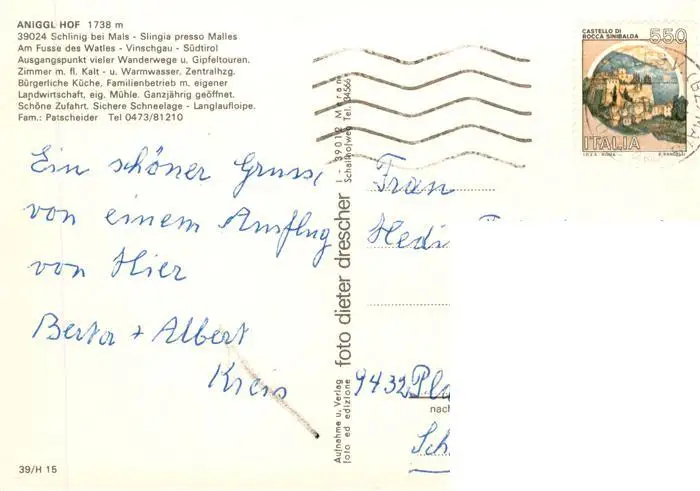 ANIGGL HOF 1738 m
39024 Schlinig bei Mals - Slingia presso Malles
Am Fusse des Watles - Vinschgau - Südtirol
Ausgangspunkt vieler Wanderwege u. Gipfeltouren.
Zimmer m. fl. Kalt - u. Warmwasser. Zentralhzg.
Bürgerliche Küche, Familienbetrieb m. eigener
Landwirtschaft, eig. Mühle. Ganzjährig geöffnet.
Schöne Zufahrt. Sichere Schneelage - Langlaufloipe.
Fam.: Patscheider Tel 0473/81210
Ein schöner Gruss,
von einem Ausflug
von Hier
Berta + Albert
Kreis
39/H 15
Aufnahme u. Verlag
foto ed edizione
foto dieter drescher
I - 39012 Meran
Schallhofweg Tel. 34566
CASTELLO DI
ROCCA SINIBALDA
550
ITALIA
I.P.Z.S. ROMA
Frau
Hedi
9432 Pla
nach
Sch